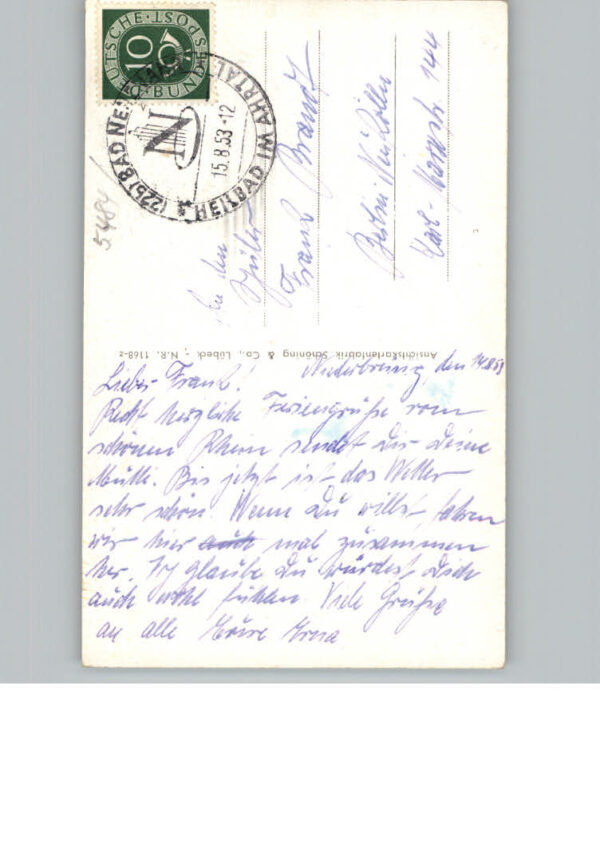 DEUTSCHE·POST·BUNDES
10
(22b) BAD NEUENAHR
N
15.8.53-12
HEILBAD IM AHRTAL
5484
An den
Schüler
Franz Brandt
Berlin-Neukölln
Karl-Marxstr. 144
Ansichtskartenfabrik Schöning & Co., Lübeck - N.R. 1168-z
Niederbreisig, den 14.8.53
Lieber Franz!
Recht herzliche Feriengrüße vom
schönen Rhein sendet Dir Deine
Mutti. Bis jetzt ist das Wetter
sehr schön. Wenn Du willst, fahren
wir hier auch mal zusammen
her. Ich glaube Du würdest Dich
auch wohl fühlen. Viele Grüße
an alle Erna